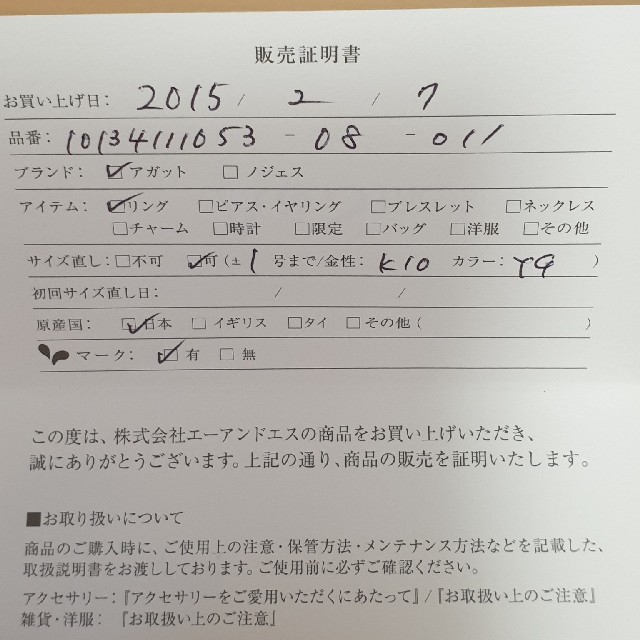 販売証明書
お買い上げ日: 2015 / 2 / 7
品番: 10134111053 - 08 - 011
ブランド: ☑アガット □ノジェス
アイテム: ☑リング □ピアス・イヤリング □ブレスレット □ネックレス
□チャーム □時計 □限定 □バッグ □洋服 □その他
サイズ直し: □不可 ☑可(± 1 号まで/金性: K10 カラー: YG )
初回サイズ直し日: / /
原産国: ☑日本 □イギリス □タイ □その他( )
マーク: ☑有 □無
この度は、株式会社エーアンドエスの商品をお買い上げいただき、
誠にありがとうございます。上記の通り、商品の販売を証明いたします。
■お取り扱いについて
商品のご購入時に、ご使用上の注意・保管方法・メンテナンス方法などを記載した、
取扱説明書をお渡ししております。ご使用前に必ずご確認ください。
アクセサリー:『アクセサリーをご愛用いただくにあたって』/『お取扱い上のご注意』
雑貨・洋服: 『お取扱い上のご注意』